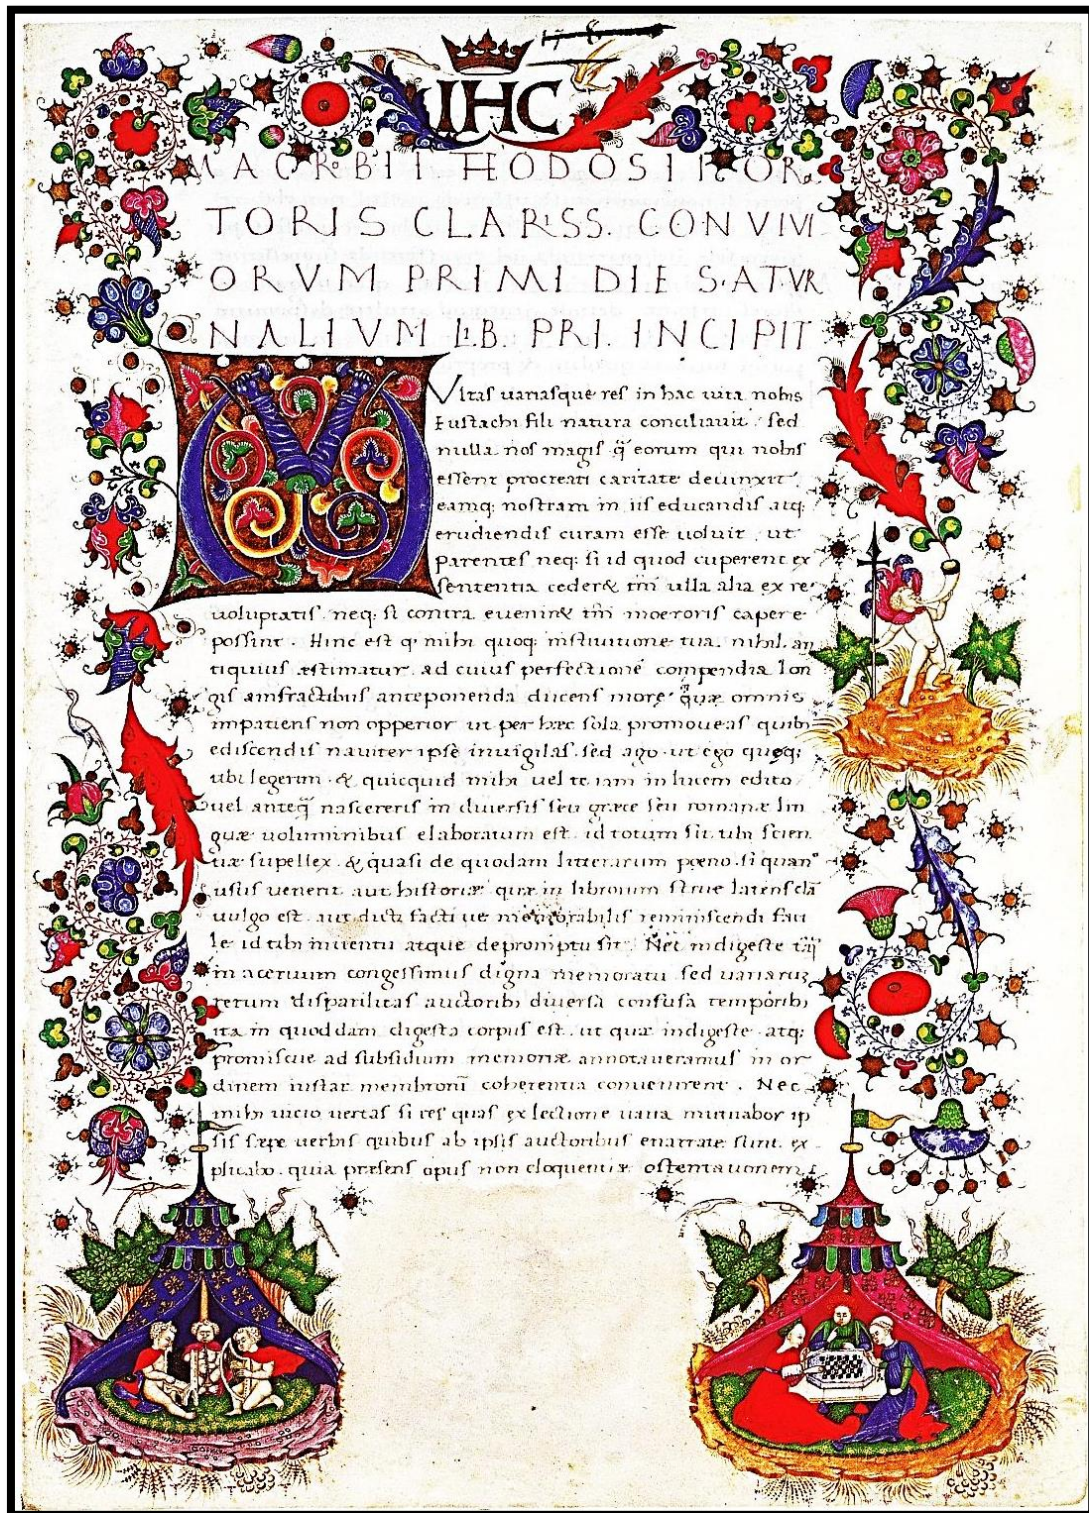 IHC
MACRBII THEODOSII OR
TORIS CLARISS. CONVIVI
ORVM PRIMI DIE SATVR
NALIVM LIB. PRI. INCIPIT
M Vltas uariasque res in hac uita nobis
Eustachi fili natura conciliauit. sed
nulla nos magis q̃ eorum qui nobis
essent procreati caritate deuinxit
eamq; nostram in iis educandis atq;
erudiendis curam esse uoluit. ut
parentes neq; si id quod cuperent ex
sententia ceder& tm̃ ulla alia ex re
uoluptatis. neq; si contra euenir& tm̃ moeroris capere
possint. Hinc est q mihi quoq; institutione tua. nihil an
tiquius æstimatur. ad cuius perfectionẽ compendia lon
gis amfractibus anteponenda ducens moræq; quæ omnis
impatiens non opperior ut per hæc sola promoueas quib;
ediscendis nauiter ipse inuigilas. sed ago ut ego quoq;
tibi legerim. & quicquid mihi uel te iam in lucem edito
uel anteq̃ nascereris in diuersis seu græcæ seu romanæ lin
guæ uoluminibus elaboratum est. id totum sit tibi scien
tiæ supellex. & quasi de quodam litterarum pœno. si quan°
usus uenerit aut historiæ quæ in librorum strue latens clã
uulgo est. aut dicti facti ue memorabilis reminiscendi facι
le id tibi inuentu atque depromptu sit. Nec indigeste tãq̃
in aceruum congessimus digna memoratu sed uariarum
rerum disparilitas auctorib; diuersa confusa temporib;
ita in quoddam digesta corpus est. ut quæ indigeste atq;
promiscue ad subsidium memoriæ annotaueramus in or
dinem instar membroru coherentia conuenirent. Nec
mihi uicio uertas si res quas ex lectione uaria mutuabor ip
sis sæpe uerbis quibus ab ipsis auctoribus enarrate sunt. ex
plicabo. quia presens opus non eloquentiæ ostentationem.